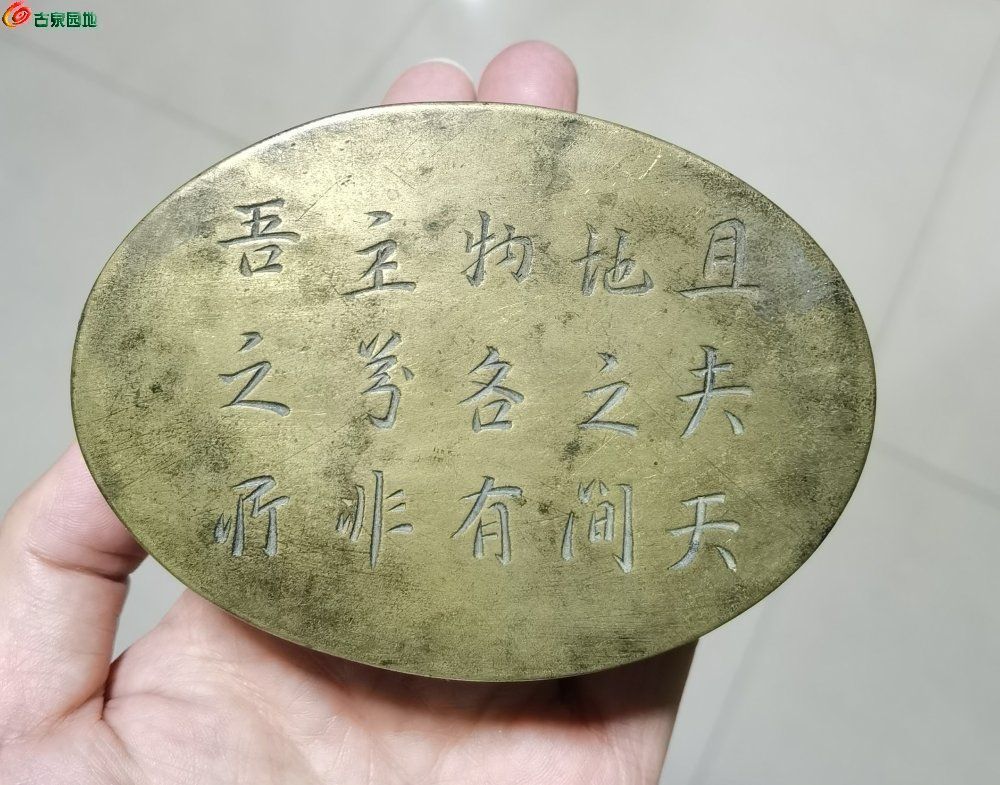 古泉园地
且夫天
地之间
物各有
主茍非
吾之所